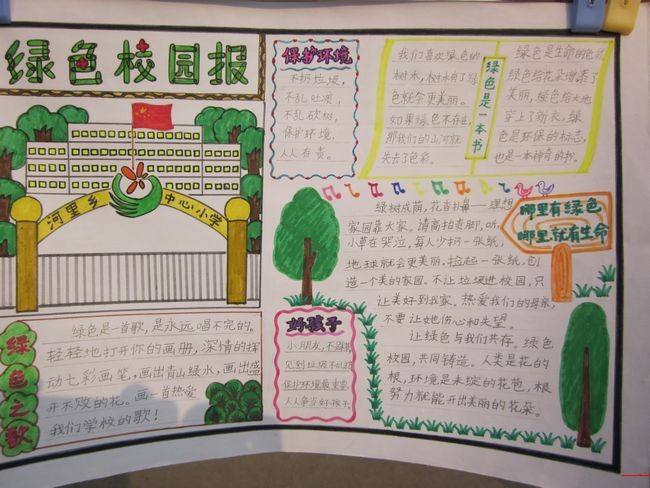 绿色校园报
河里乡
中心小学
绿色之歌
绿色是一首歌,是永远唱不完的。
轻轻地打开你的画册,深情的挥
动七彩画笔,画出青山绿水,画出盛
开不败的花。画一首热爱
我们学校的歌!
保护环境
不扔垃圾,
不乱吐痰,
不乱砍树,
保护环境,
人人有责。
绿色是一本书
我们喜欢绿色的
树木,树木有了绿
色就会更美丽。
如果绿色不存在,
那我们的山河就
失去了色彩。
绿色是生命的色彩
绿色给花朵增添了
美丽,绿色给大地
穿上了新衣,绿
色是环保的标志,
也是一本神奇的书。
哪里有绿色
哪里就有生命
绿树成荫,花香扑鼻——理想
家园靠大家。请高抬贵脚,听,
小草在哭泣,每人少扔一张纸,
地球就会更美丽。捡起一张纸,创
造一个美的家园。不让垃圾进校园,只
让美好到我家。热爱我们的母亲,
不要让她伤心和失望。
让绿色与我们共存。绿色
校园,共同铸造。人类是花的
根,环境是未绽的花苞,根
努力就能开出美丽的花朵。
好孩子
小朋友,不
见到垃圾
保护环境最重要,
人人争当好孩子。